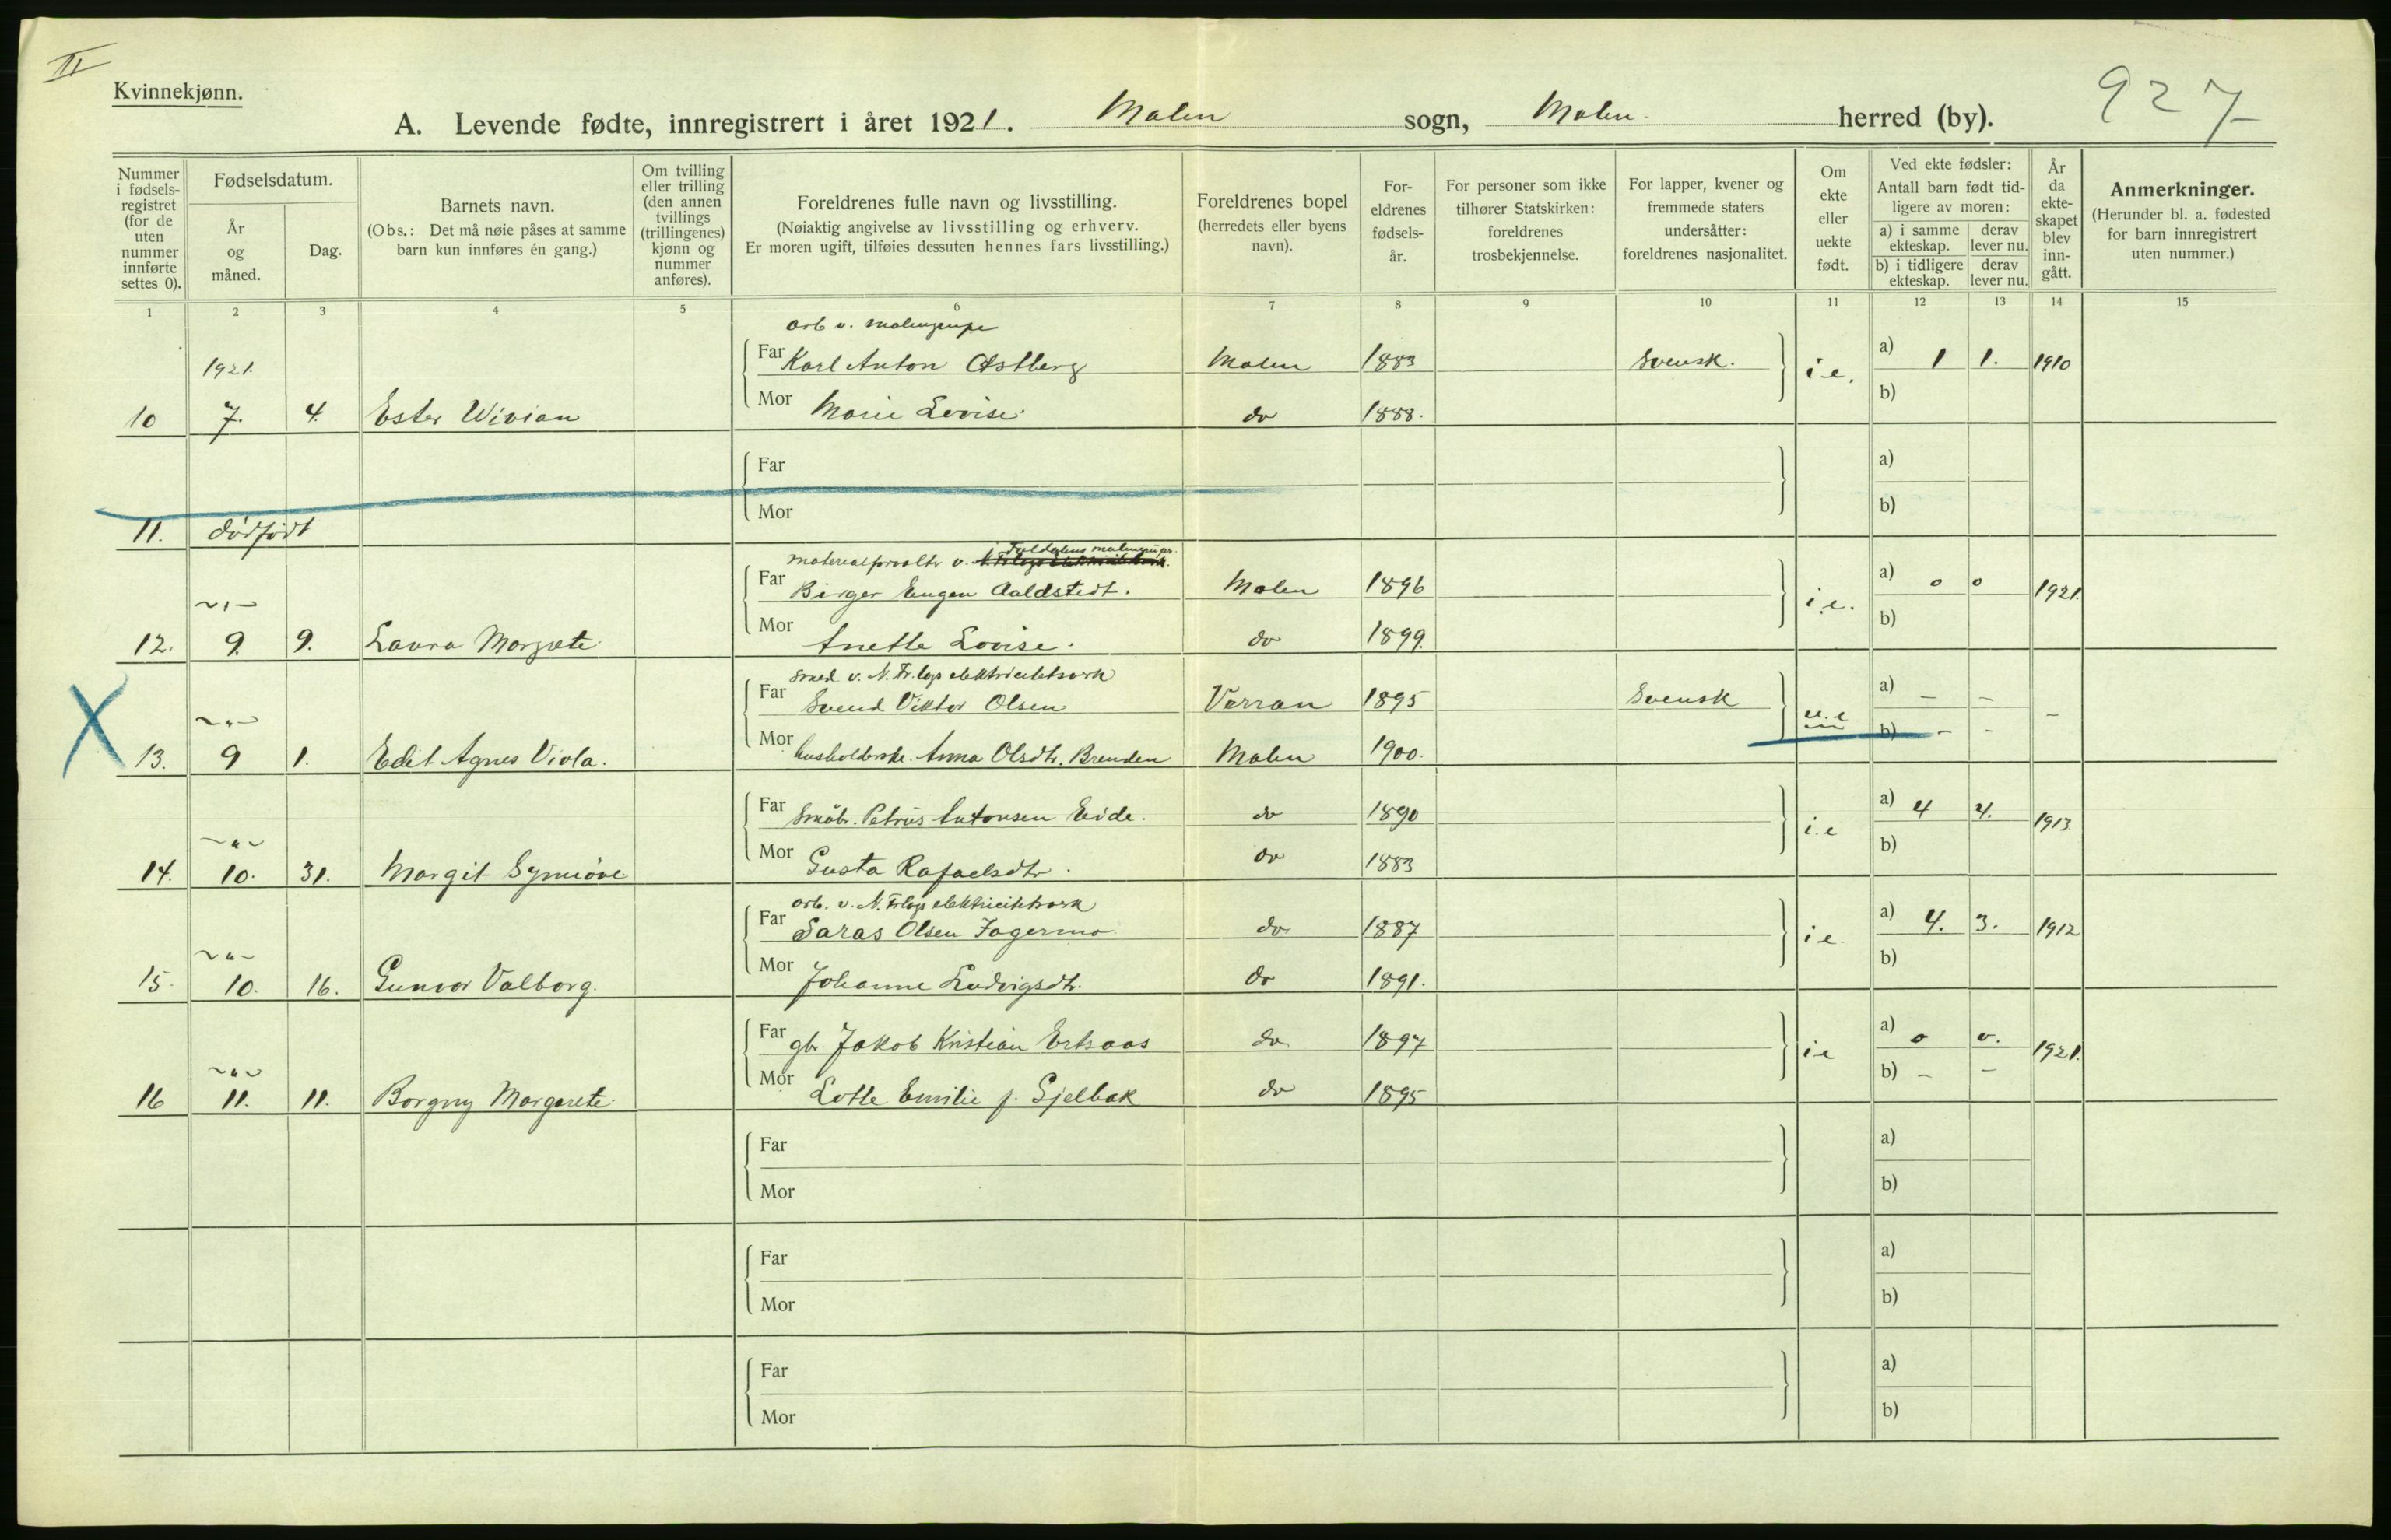 II
Kvinnekjønn.
A. Levende fødte, innregistrert i året 1921. Malm sogn, Malm herred (by).
927
Nummer i fødsels-registret (for de uten nummer innførte settes 0).
Fødselsdatum.
År og måned.
Dag.
Barnets navn.
(Obs.: Det må nøie påses at samme barn kun innføres én gang.)
Om tvilling eller trilling (den annen tvillings (trillingenes) kjønn og nummer anføres).
Foreldrenes fulle navn og livsstilling.
(Nøiaktig angivelse av livsstilling og erhverv.
Er moren ugift, tilføies dessuten hennes fars livsstilling.)
Foreldrenes bopel
(herredets eller byens navn).
For-eldrenes fødsels-år.
For personer som ikke tilhører Statskirken: foreldrenes trosbekjennelse.
For lapper, kvener og fremmede staters undersåtter: foreldrenes nasjonalitet.
Om ekte eller uekte født.
Ved ekte fødsler:
Antall barn født tid-ligere av moren:
a) i samme ekteskap.
derav lever nu.
b) i tidligere ekteskap.
derav lever nu.
År da ekte-skapet blev inn-gått.
Anmerkninger.
(Herunder bl. a. fødested for barn innregistrert uten nummer.)
1 2 3 4 5 6 7 8 9 10 11 12 13 14 15
arb v. malmgrupe
1921. Far Karl Anton Østberg Malm 1883 Svensk. i.e. a) 1 1. 1910
10 7. 4. Ester Wivian Mor Marie Lovise. do 1888. b)
Far a)
11. dødfødt Mor b)
materialforvaltr v.
Far Birger Eugen Aaldstedt. Malm 1896 i.e. a) o o 1921.
12. 9. 9. Laura Margrete. Mor Anette Lovise. do 1899. b)
smed v. N. Tr.lags elektricitetsverk
Far Svend Viktor Olsen Verran 1895 Svensk u.e a) – – –
13. 9 1. Edit Agnes Viola. Mor husholderske Anna Olsdtr. Brenden Malm 1900. b) – –
Far småbr. Petrus Antonsen Eide. do 1890 i.e a) 4 4. 1913
14. 10. 31. Margit Synnöve Mor Gusta Rafaelsdtr. do 1883 b)
arb. v. N. Trlags elektricitetsverk
Far Saras Olsen Fagermo. do 1887 i e. a) 4. 3. 1912
15. 10. 16. Gunvor Valborg. Mor Johanne Ludvigsdtr. do 1891. b)
Far gbr Jakob Kristian Ertsaas do 1897 i e a) o o. 1921.
16 11. 11. Borgny Margarete. Mor Lotte Emilie f. Gjelbak do 1895 b) – –
Far a)
Mor b)
Far a)
Mor b)
Far a)
Mor b)